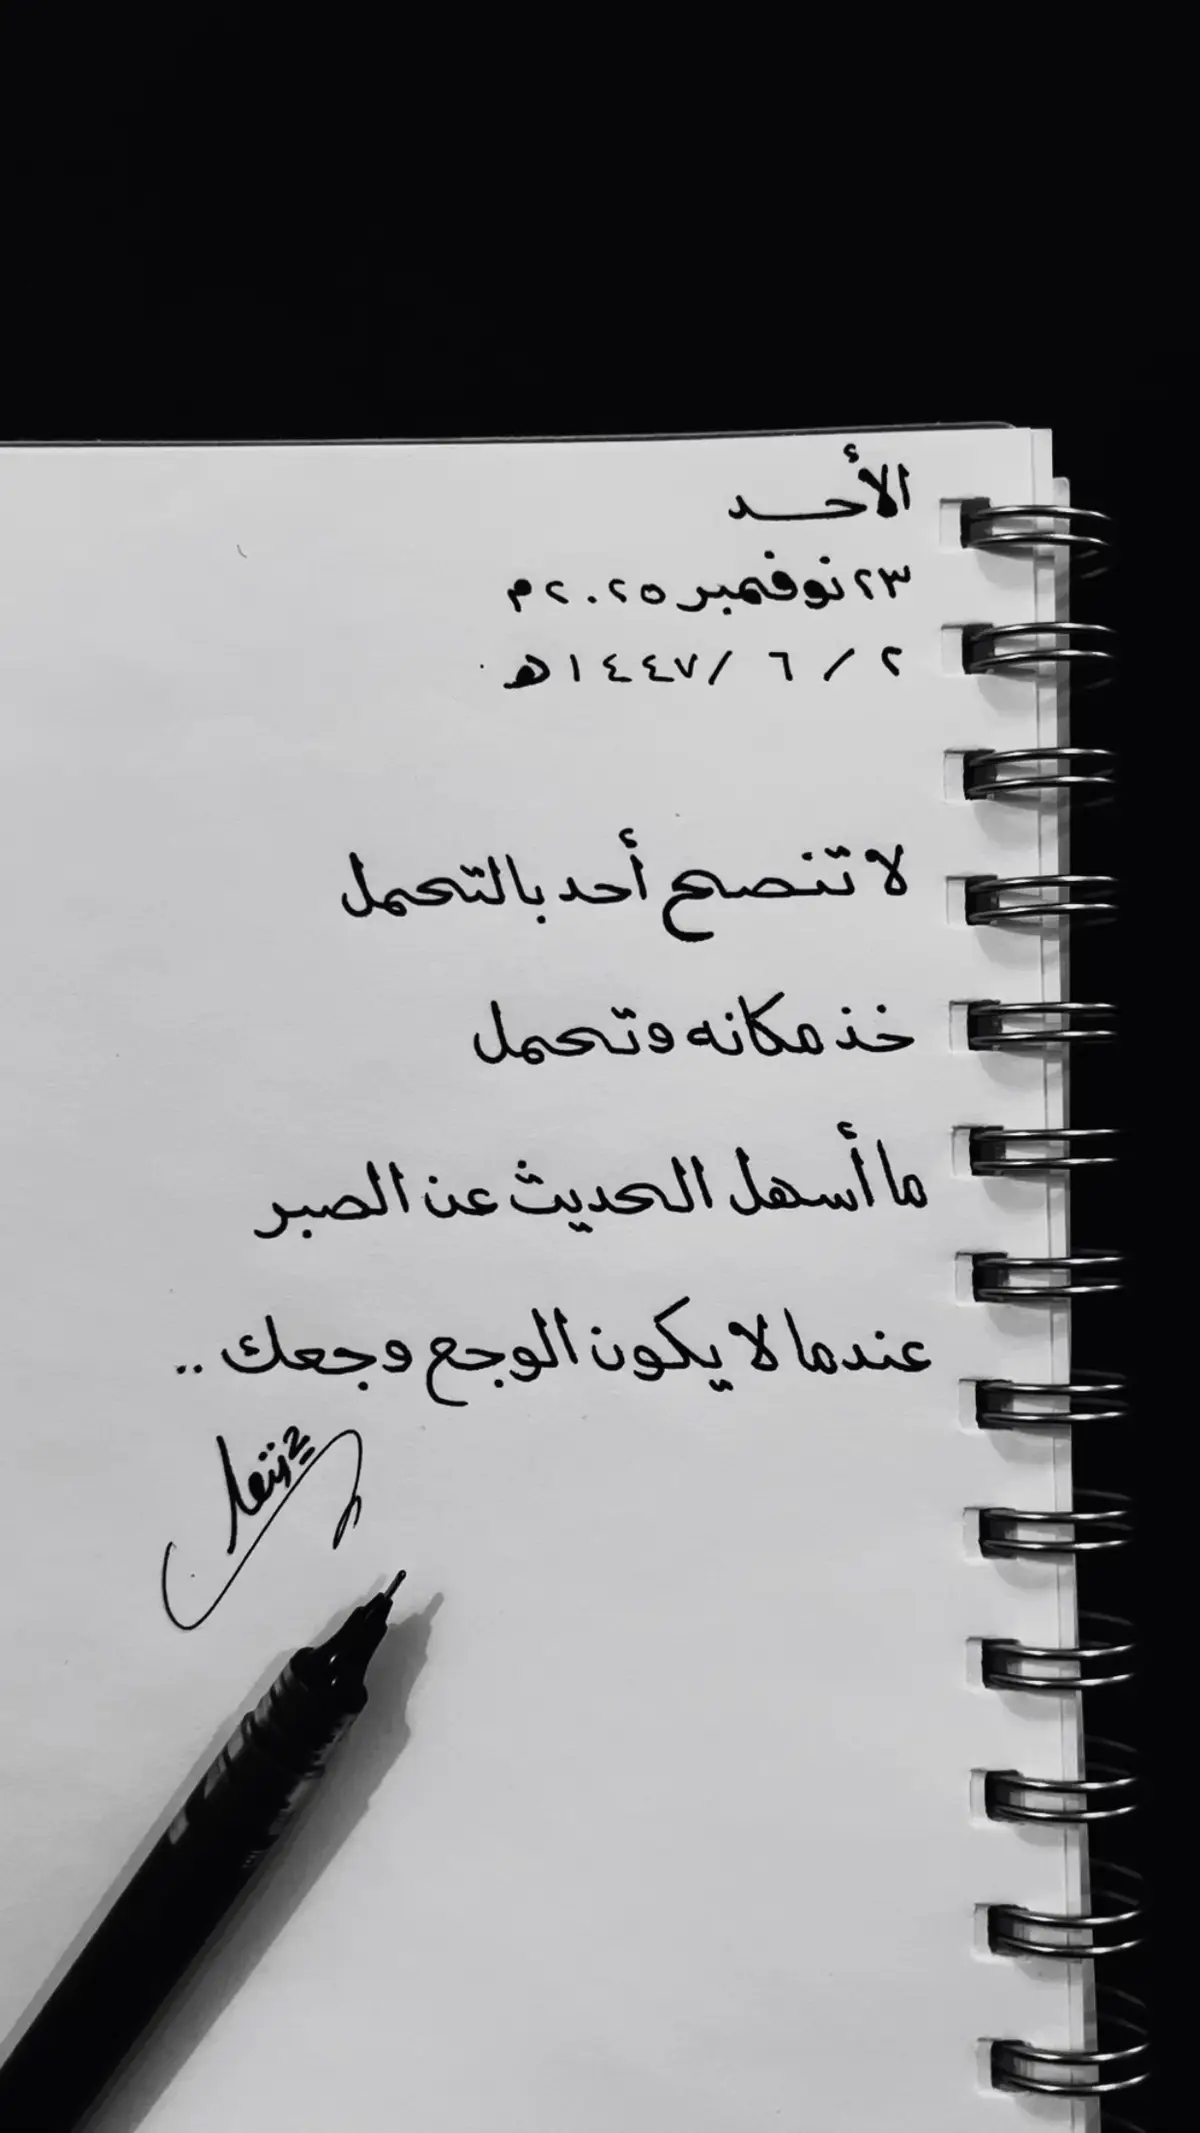 الأحد
٢٣ نوفمبر ٢٠٢٥ م
٢ / ٦ / ١٤٤٧ هـ
لا تنصح أحد بالتحمل
خذ مكانه وتحمل
ما أسهل الحديث عن الصبر
عندما لا يكون الوجع وجعك ..